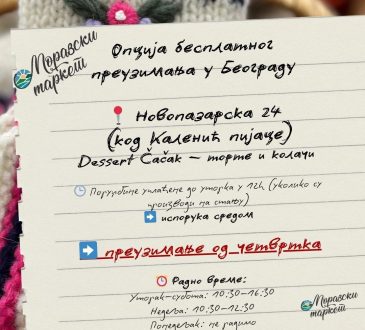 Моравски
маркет
Опција бесплатног
преузимања у Београду
📍 Новопазарска 24
(код Каленић пијаце)
Dessert Čačak — торте и колачи
🕒 Поруџбине уплаћене до уторка у 12h (уколико су
производи на стању)
➡️ испорука средом
➡️ преузимање од четвртка
⏰ Радно време:
Уторак-субота: 10:30-16:30
Недеља: 10:30-12:30
Понедељак: не радимо
Моравски
маркет